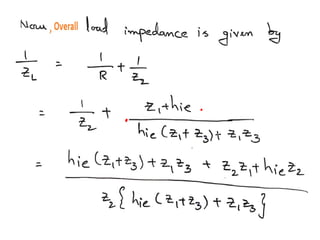 Now, Overall load impedance is given by
1/Z_L = 1/R + 1/Z_2
= 1/Z_2 + (Z_1+hie)/(hie(Z_1+Z_3)+Z_1Z_3)
= (hie(Z_1+Z_3)+Z_1Z_3 + Z_2Z_1+hieZ_2)/(Z_2{hie(Z_1+Z_3)+Z_1Z_3})